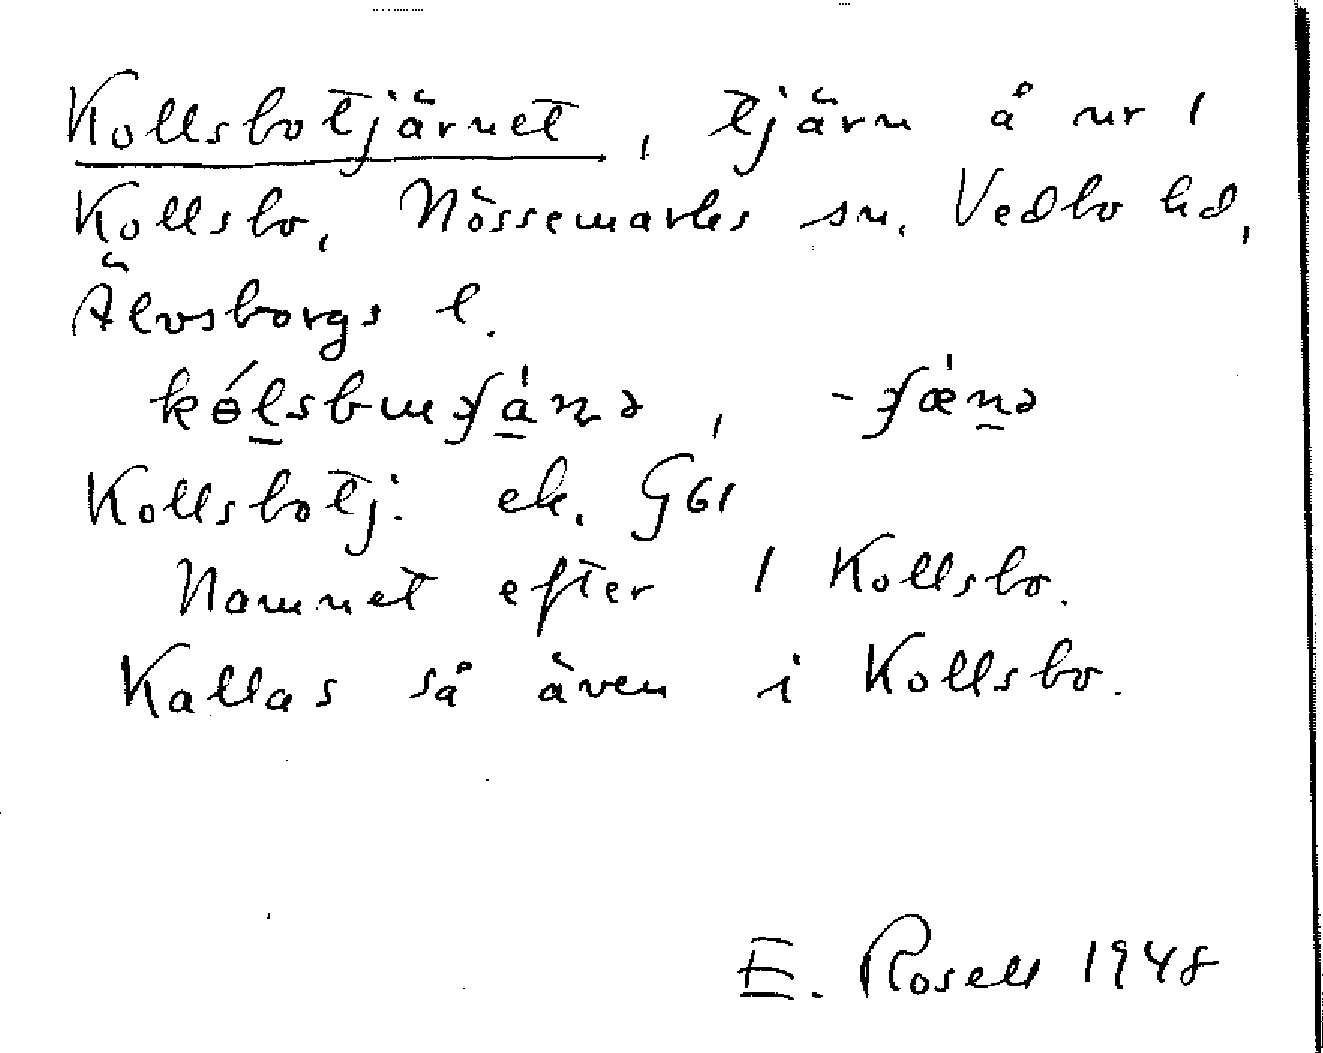 Kollsbotjärnet, tjärn å nr 1
Kollsbo, Nössemarks sn. Vedbo hd,
Älvsborgs l.
Kollsbotj: ek. G61
Namnet efter 1 Kollsbo.
Kallas så även i Kollsbo.
E. Rosell 1948